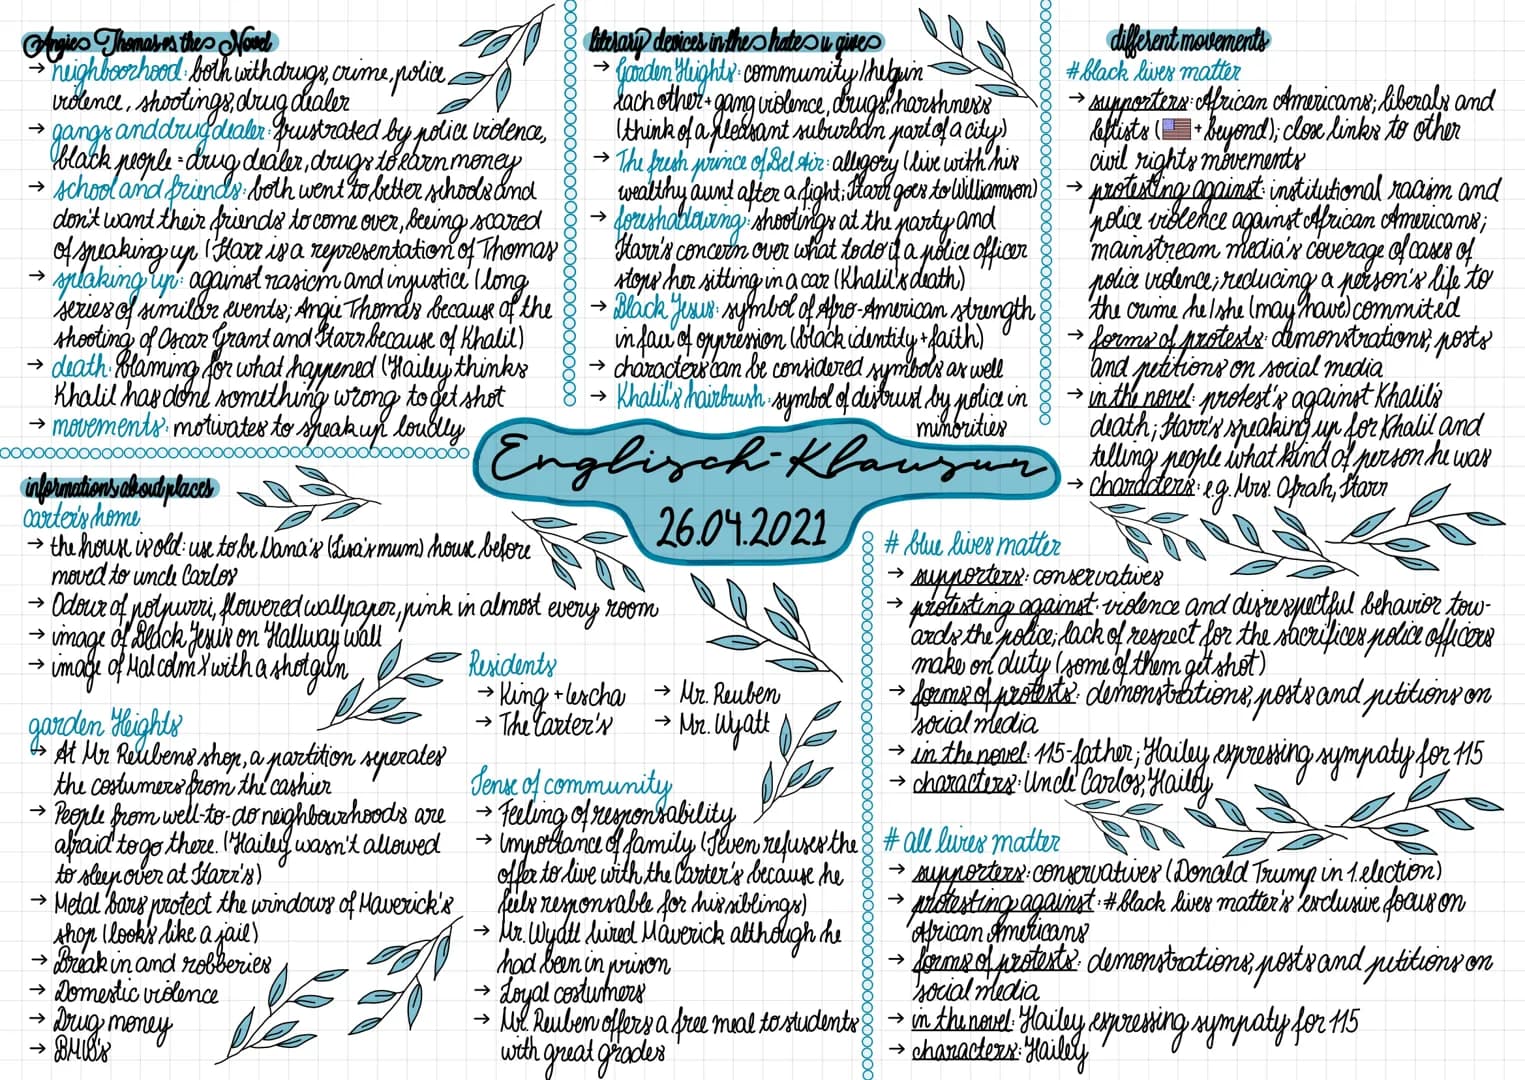 Angie Thomas vs the Novel
→ neighboorhood: both with drugs, crime, police
violence, shootings, drug dealer
→ gangs and drug dealer: frustrated by police violence,
black people = drug dealer, drugs to earn money
→ school and friends: both went to better schools and
don't want their friends to come over, being scared
of speaking up (Starr is a representation of Thomas
→ speaking up: against rasicm and injustice (long
series of similar events; Angie Thomas because of the
shooting of Oscar Grant and Starr because of Khalil)
→ death: blaming for what happened (Hailey thinks
Khalil has done something wrong to get shot
→ movements: motivates to speak up loudly
literary devices in the hate u give
→ Garden Heights: community / help in
each other + gang violence, drugs, harshness
(think of a pleasant suburban part of a city)
→ The fresh prince of Bel Air: allegory (live with his
wealthy aunt after a fight; Starr goes to Williamson)
→ foreshadowing: shootings at the party and
Starr's concern over what to do if a police officer
stops her sitting in a car (Khalil's death)
→ Black Jesus: symbol of Afro-American strength
in face of oppression (black identity + faith)
→ characters can be considered symbols as well
→ Khalil's hairbrush: symbol of distrust by police in
minorities
different movements
#black lives matter
→ supporters: African Americans; liberals and
leftists (🇺🇸 + beyond); close links to other
civil rights movements
→ protesting against: institutional racism and
police violence against African Americans;
mainstream media's coverage of cases of
police violence; reducing a person's life to
the crime he/she (may have) commited
→ forms of protests: demonstrations, posts
and petitions on social media
→ in the novel: protest's against Khalil's
death; Starr's speaking up for Khalil and
telling people what kind of person he was
→ characters: e.g. Mrs. Ofrah, Starr
Englisch-Klausur
26.04.2021
informations about places
Carter's home
→ the house is old: use to be Nana's (Lisa's mum) house before
moved to uncle Carlos
→ Odour of potpurri, flowered wallpaper, pink in almost every room
→ image of Black Jesus on Hallway wall
→ image of Malcolm X with a shotgun
garden Heights
→ At Mr Reubens shop, a partition seperates
the costumers from the cashier
→ People from well-to-do neighbourhoods are
afraid to go there. (Hailey wasn't allowed
to sleep over at Starr's)
→ Metal bars protect the windows of Maverick's
shop (looks like a jail)
→ Break in and robberies
→ Domestic violence
→ Drug money
→ BMW's
Residents
→ King + Iescha → Mr. Reuben
→ The Carter's → Mr. Wyatt
Sense of community
→ Feeling of responsability
→ Importance of family (Seven refuses the
offer to live with the Carter's because he
feels responsable for his siblings)
→ Mr. Wyatt hired Maverick although he
had been in prison
→ Loyal costumers
→ Mr. Reuben offers a free meal to students
with great grades
# blue lives matter
→ supporters: conservatives
→ protesting against: violence and disrespectful behavior tow-
ards the police; lack of respect for the sacrifices police officers
make on duty (some of them get shot)
→ forms of protests: demonstrations, posts and petitions on
social media
→ in the novel: 115-father; Hailey expressing sympaty for 115
→ characters: Uncle Carlos, Hailey
# all lives matter
→ supporters: conservatives (Donald Trump in 1. election)
→ protesting against: #black lives matter's exclusive focus on
African Americans
→ forms of protests: demonstrations, posts and petitions on
social media
→ in the novel: Hailey expressing sympaty for 115
→ characters: Hailey